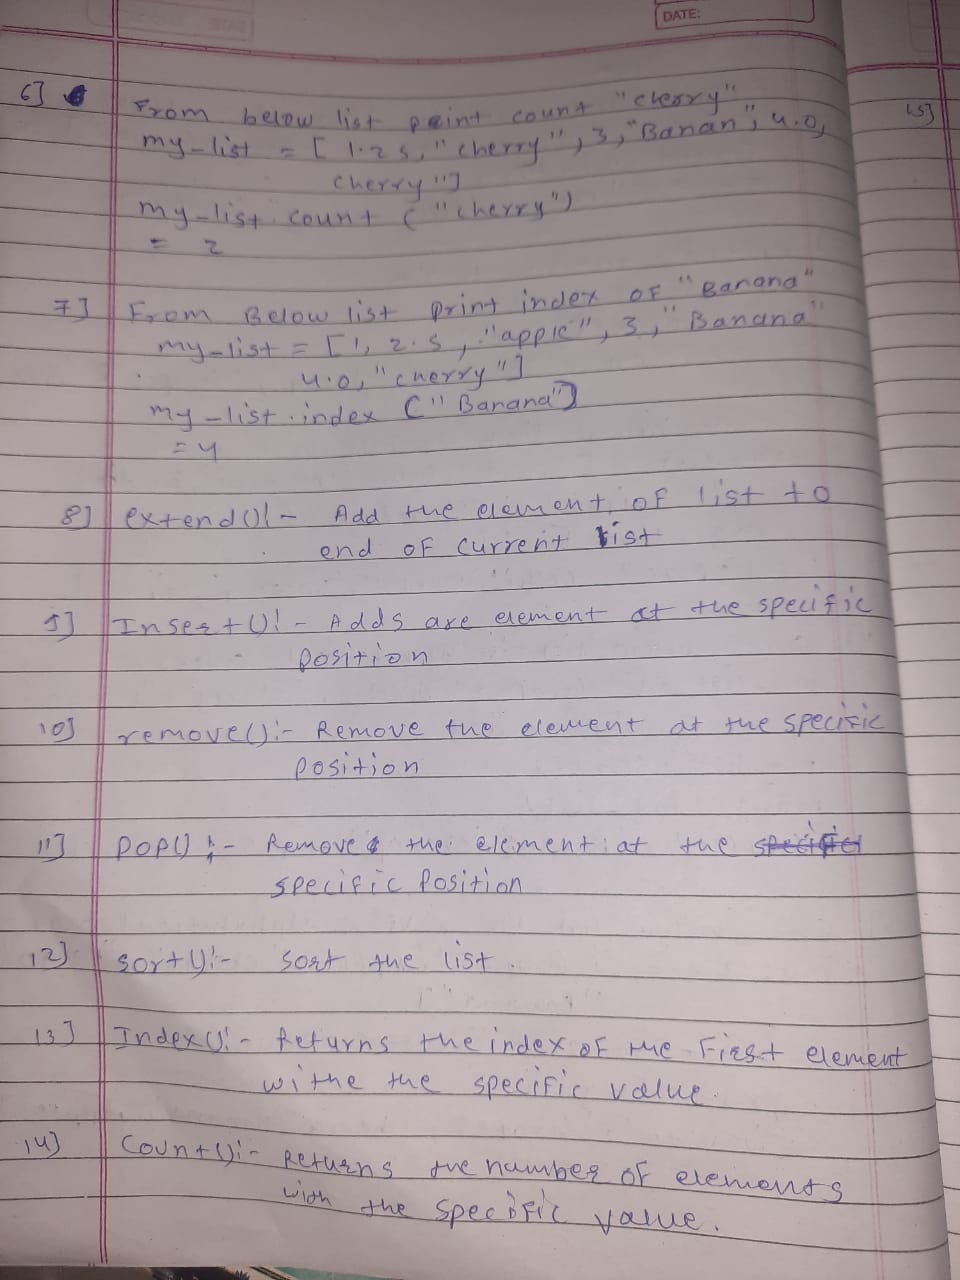 DATE:
6]
From below list print count "cherry"
my-list = [ 1.2 5, "cherry", 3, "Banan", 4.0,
cherry"]
my-list. count ( "cherry")
= 2
7] From Below list print index OF "Banana"
my-list = [1, 2.5, "apple", 3, "Banana"
4.0, "cherry"]
my-list.index ("Banana")
= 4
8] extend():- Add the element of list to
end of current list
9] Insert():- Adds are element at the specific
position
10] remove():- Remove the element at the specific
position
11] POP():- Remove the element at the
specific Position
12] sort():- sort the list.
13] Index():- Returns the index of the First element
withe the specific value.
14] Count():- Returns the number of elements
with the specific value.
15]